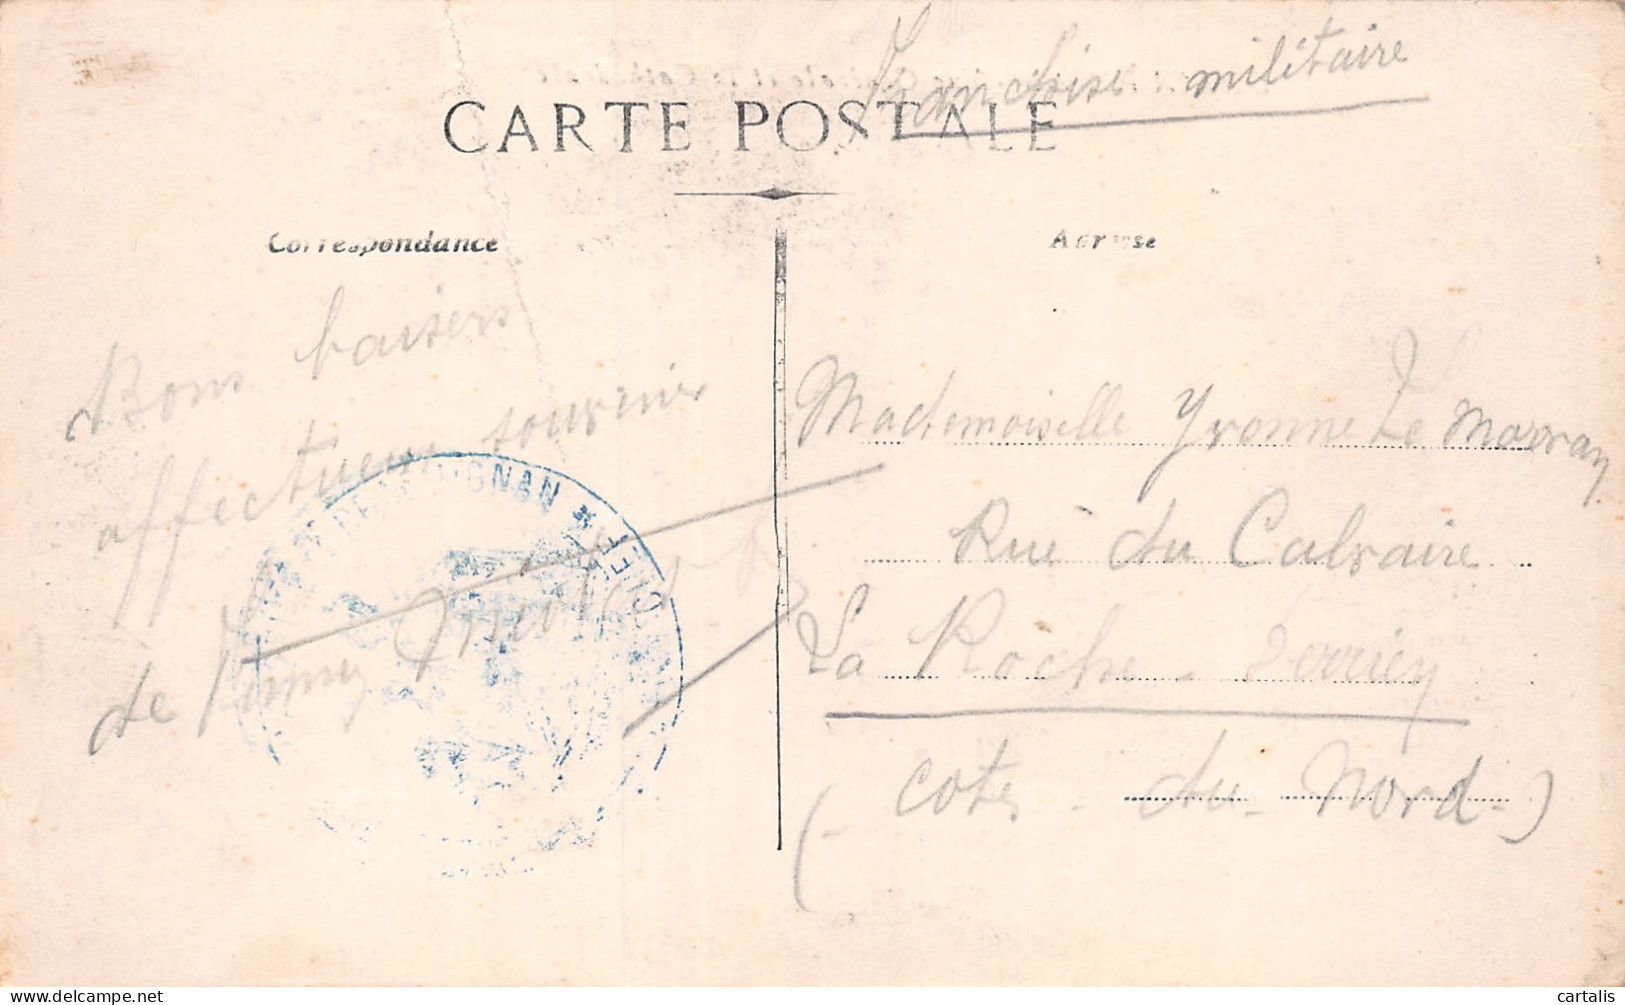 Franchise militaire
CARTE POSTALE
Correspondance
Adresse
Bons baisers
affectueux souvenir
de Fanny
GNAN * CHEF
Mademoiselle Yvonne Le
Rue du Calvaire
La Roche-Derrien
(- Cotes - du - Nord -)
delcampe.net
cartalis